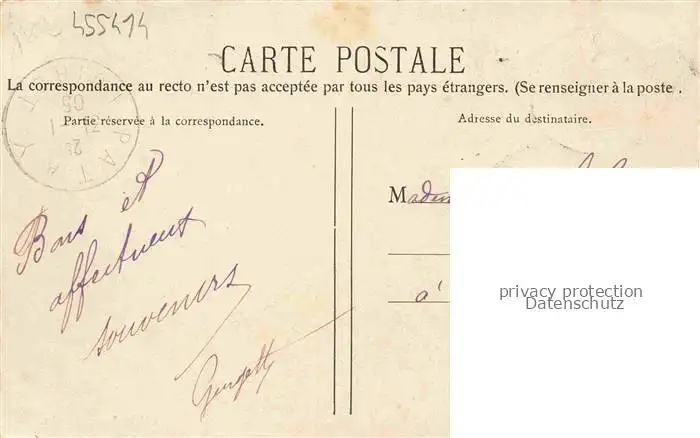 455414
CARTE POSTALE
La correspondance au recto n'est pas acceptée par tous les pays étrangers. (Se renseigner à la poste .
Partie réservée à la correspondance.
Adresse du destinataire.
PATAY
05
Bons et
affectueux
souvenirs
M
à
privacy protection
Datenschutz